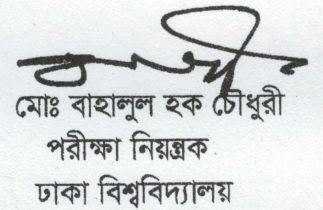 মোঃ বাহালুল হক চৌধুরী
পরীক্ষা নিয়ন্ত্রক
ঢাকা বিশ্ববিদ্যালয়